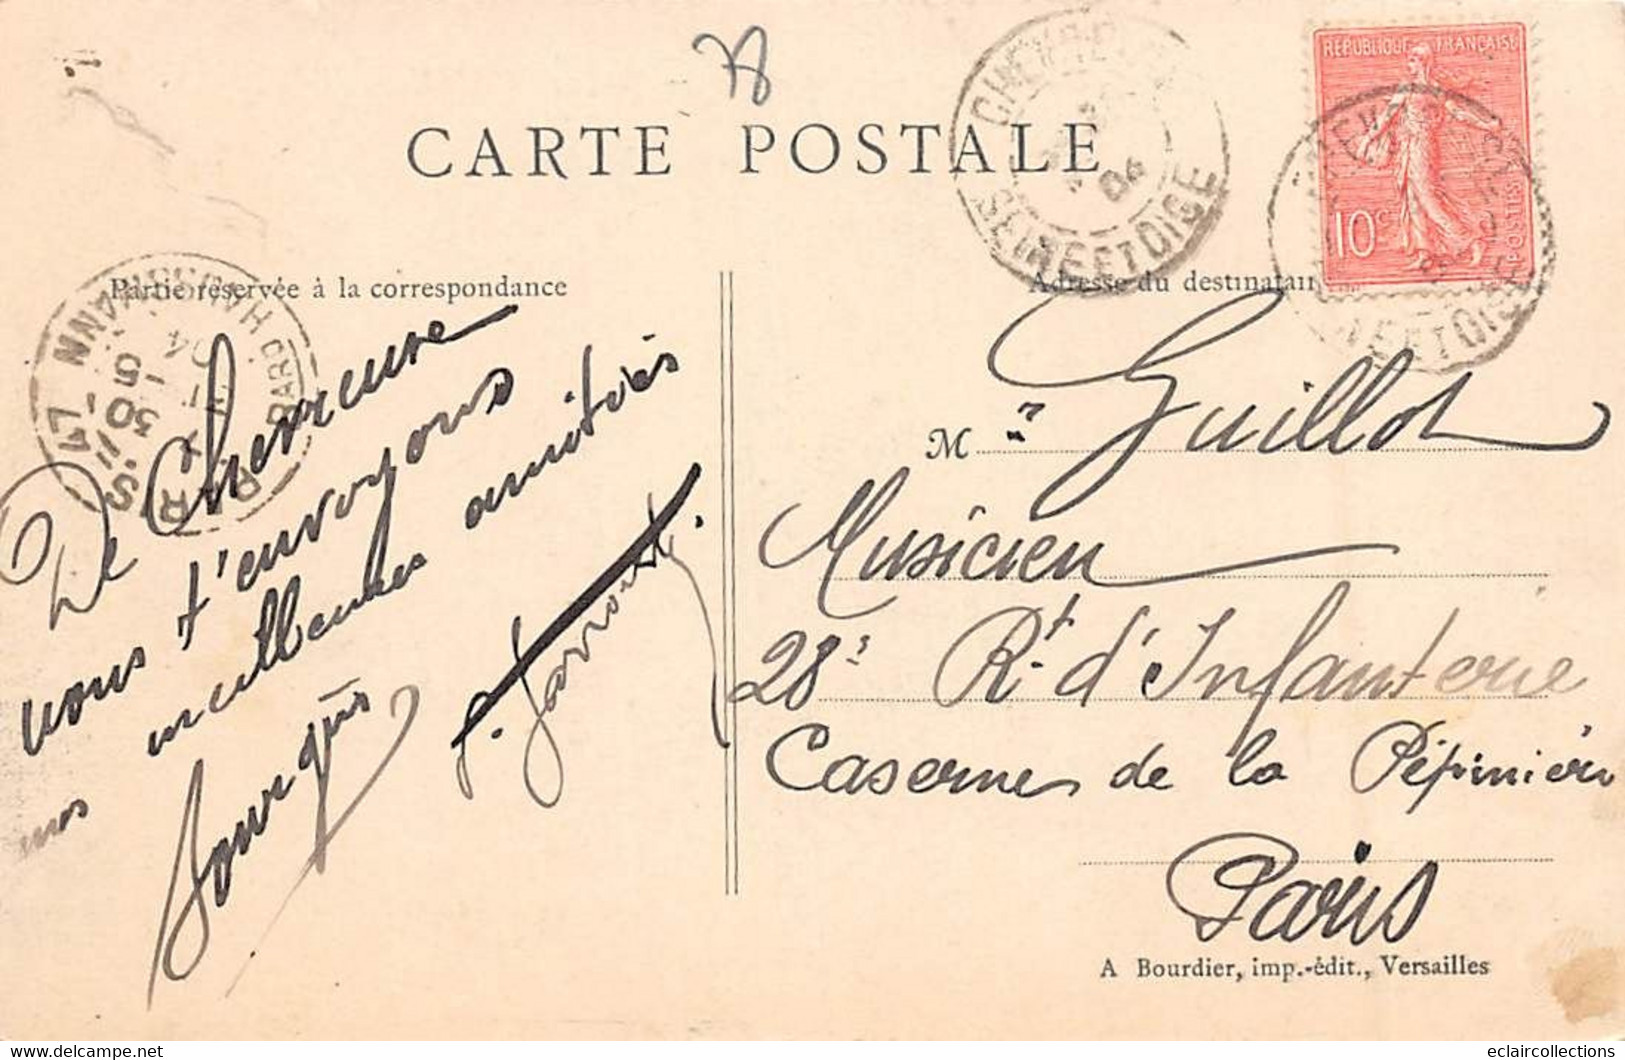 78
CARTE POSTALE
CHEVREUSE
04
SEINE ET OISE
REPUBLIQUE FRANÇAISE
10c
POSTES
SEINE ET OISE
Partie réservée à la correspondance
Adresse du destinatair
PARIS
HAUSSMANN
De Chevreuse
nous t'envoyons
nos meilleures amitiés
Mr Guillot
Musicien
28e Rt d'Infanterie
Caserne de la Pépinière
Paris
A Bourdier, imp.-édit., Versailles
eclaircollections